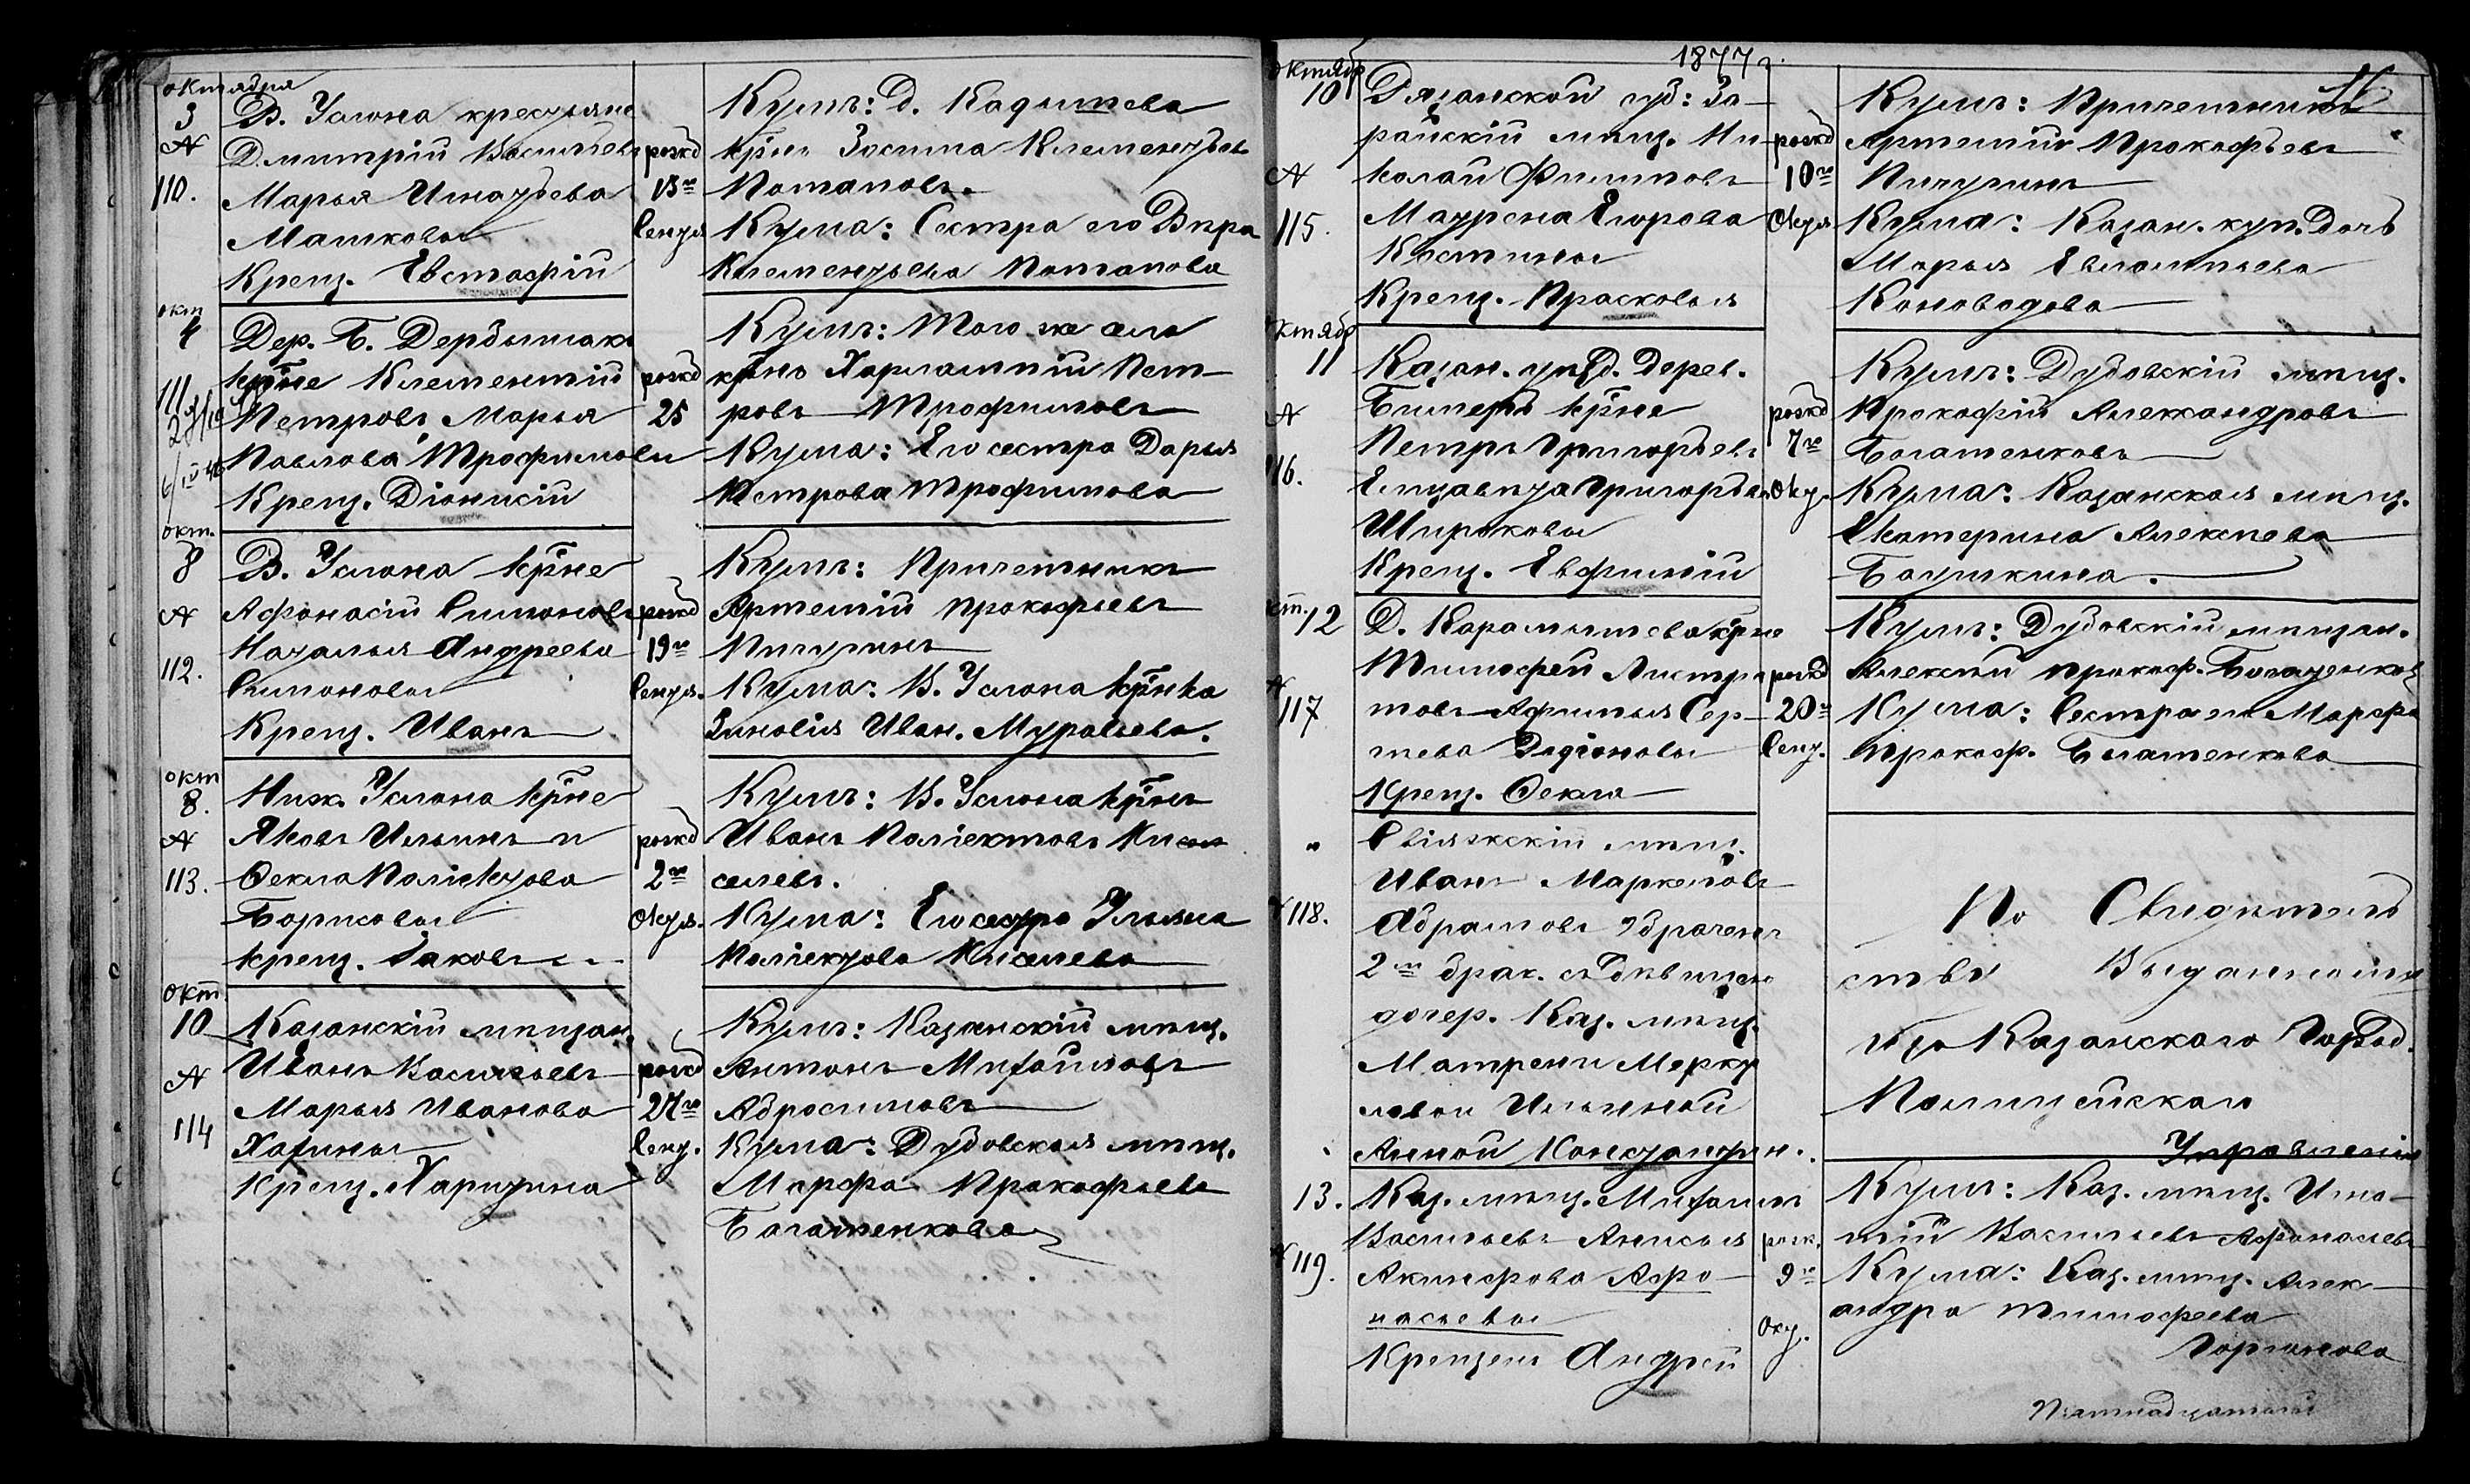 октября
3
110.
В. Услона крестьяне
Дмитрий Васильевъ
Марья Игнатьева
Машковы
Крещ. Евстафий
рожд
13го
Сентя
Кумъ: Д. Кадышева
крнъ Зосима Клементьевъ
Потаповъ.
Кума: Сестра его Вѣра
Клементьева Потапова
окт
4
111
Дер. Б. Дербышак
крне Климентий
Петровъ, Марья
Павлова Трофимовы
Крещ. Дiонисiй
рожд
25
Кумъ: Того же села
крнъ Харлампий Пет-
ровъ Трофимовъ
Кума: Его сестра Дарья
Петрова Трофимова
окт.
8
112.
В. Услона крне
Афонасiй Симоновъ
Наталья Андреева
Симоновы
Крещ. Иванъ
рожд
19го
Сентя.
Кумъ: Причетникъ
Артемiй Прокофьевъ
Пичугинъ
Кума: В. Услона крнка
Зиновiя Иван. Муравьева.
окт
8.
113.
Ниж. Услона крне
Яковъ Ильинъ и
Фекла Полiектова
Борисовы
крещ. Iаковъ
рожд
2го
Октя.
Кумъ: В. Услона крнъ
Иванъ Полiектовъ Кис
селевъ.
Кума: Его сестра Ульяна
Полiектова Киселева
Окт
10
114
Казанскiй мѣщан.
Иванъ Васильевъ
Марья Иванова
Хахины
Крещ. Харитина
рожд
27го
Сент.
Кумъ: Казанскiй мѣщ.
Антонъ Михайловъ
Абросимовъ
Кума: Дубовская мѣщ.
Марфа Прокофьева
Богатенкова
1877г.
октябр
10
115.
Рязанской губ: За-
райскiй мѣщ. Ни-
колай Филиповъ
Маурена Егорова
Костины
Крещ. Прасковья
рожд
10го
Октя
Кумъ: Причетникъ
Артемiй Прокофьевъ
Пичугинъ
Кума: Казан. куп. Дочь
Марья Евлампьева
Коноводова
ктябр
11
116.
Казан. уѣзд. Дерев.
Бимерь крне
Петръ Григорьевъ
Елизавета Григорьева
Широковы
Крещ. Евфимiй
рожд
7го
Окт.
Кумъ: Дубовскiй мѣщ.
Прокофiй Александровъ
Богатенковъ
Кума: Казанская мѣщ.
Екатерина Алексѣева
Болушкина.
кт.
12
117
Д. Карамышева крне
Тимофей
Афимья Сер-
гѣева Родiоновы
Крещ. Фекла
рожд
20го
Сент.
Кумъ: Дубовскiй мѣщан.
Алексѣй Прокоф. Богатенков
Кума: Сестра его Марфа
Прокоф. Богатенкова
118.
Свiяжскiй мѣщ.
Иванъ Маркеловъ
Абрамовъ збраченъ
2мъ брак. съ дѣвицею
дочер. Каз. мѣщ.
Матрены Мерку
ловой Ильиной
Анной Константин.
По Свидѣтель
ству Выданному
Изъ Казанскаго Город.
Полицейскаго
Управленiя
13.
119.
Каз. мѣщ. Михаилъ
Васильевъ Анисья
Акинфрова Афо-
насьевы
Крещенъ Андрей
рож.
9го
Окт.
Кумъ: Каз. мѣщ. Игна-
тiй Васильевъ Афонасьевъ
Кума: Каз. мѣщ. Алек-
андра Тимофеева
Горшкова
Пятнадцатый